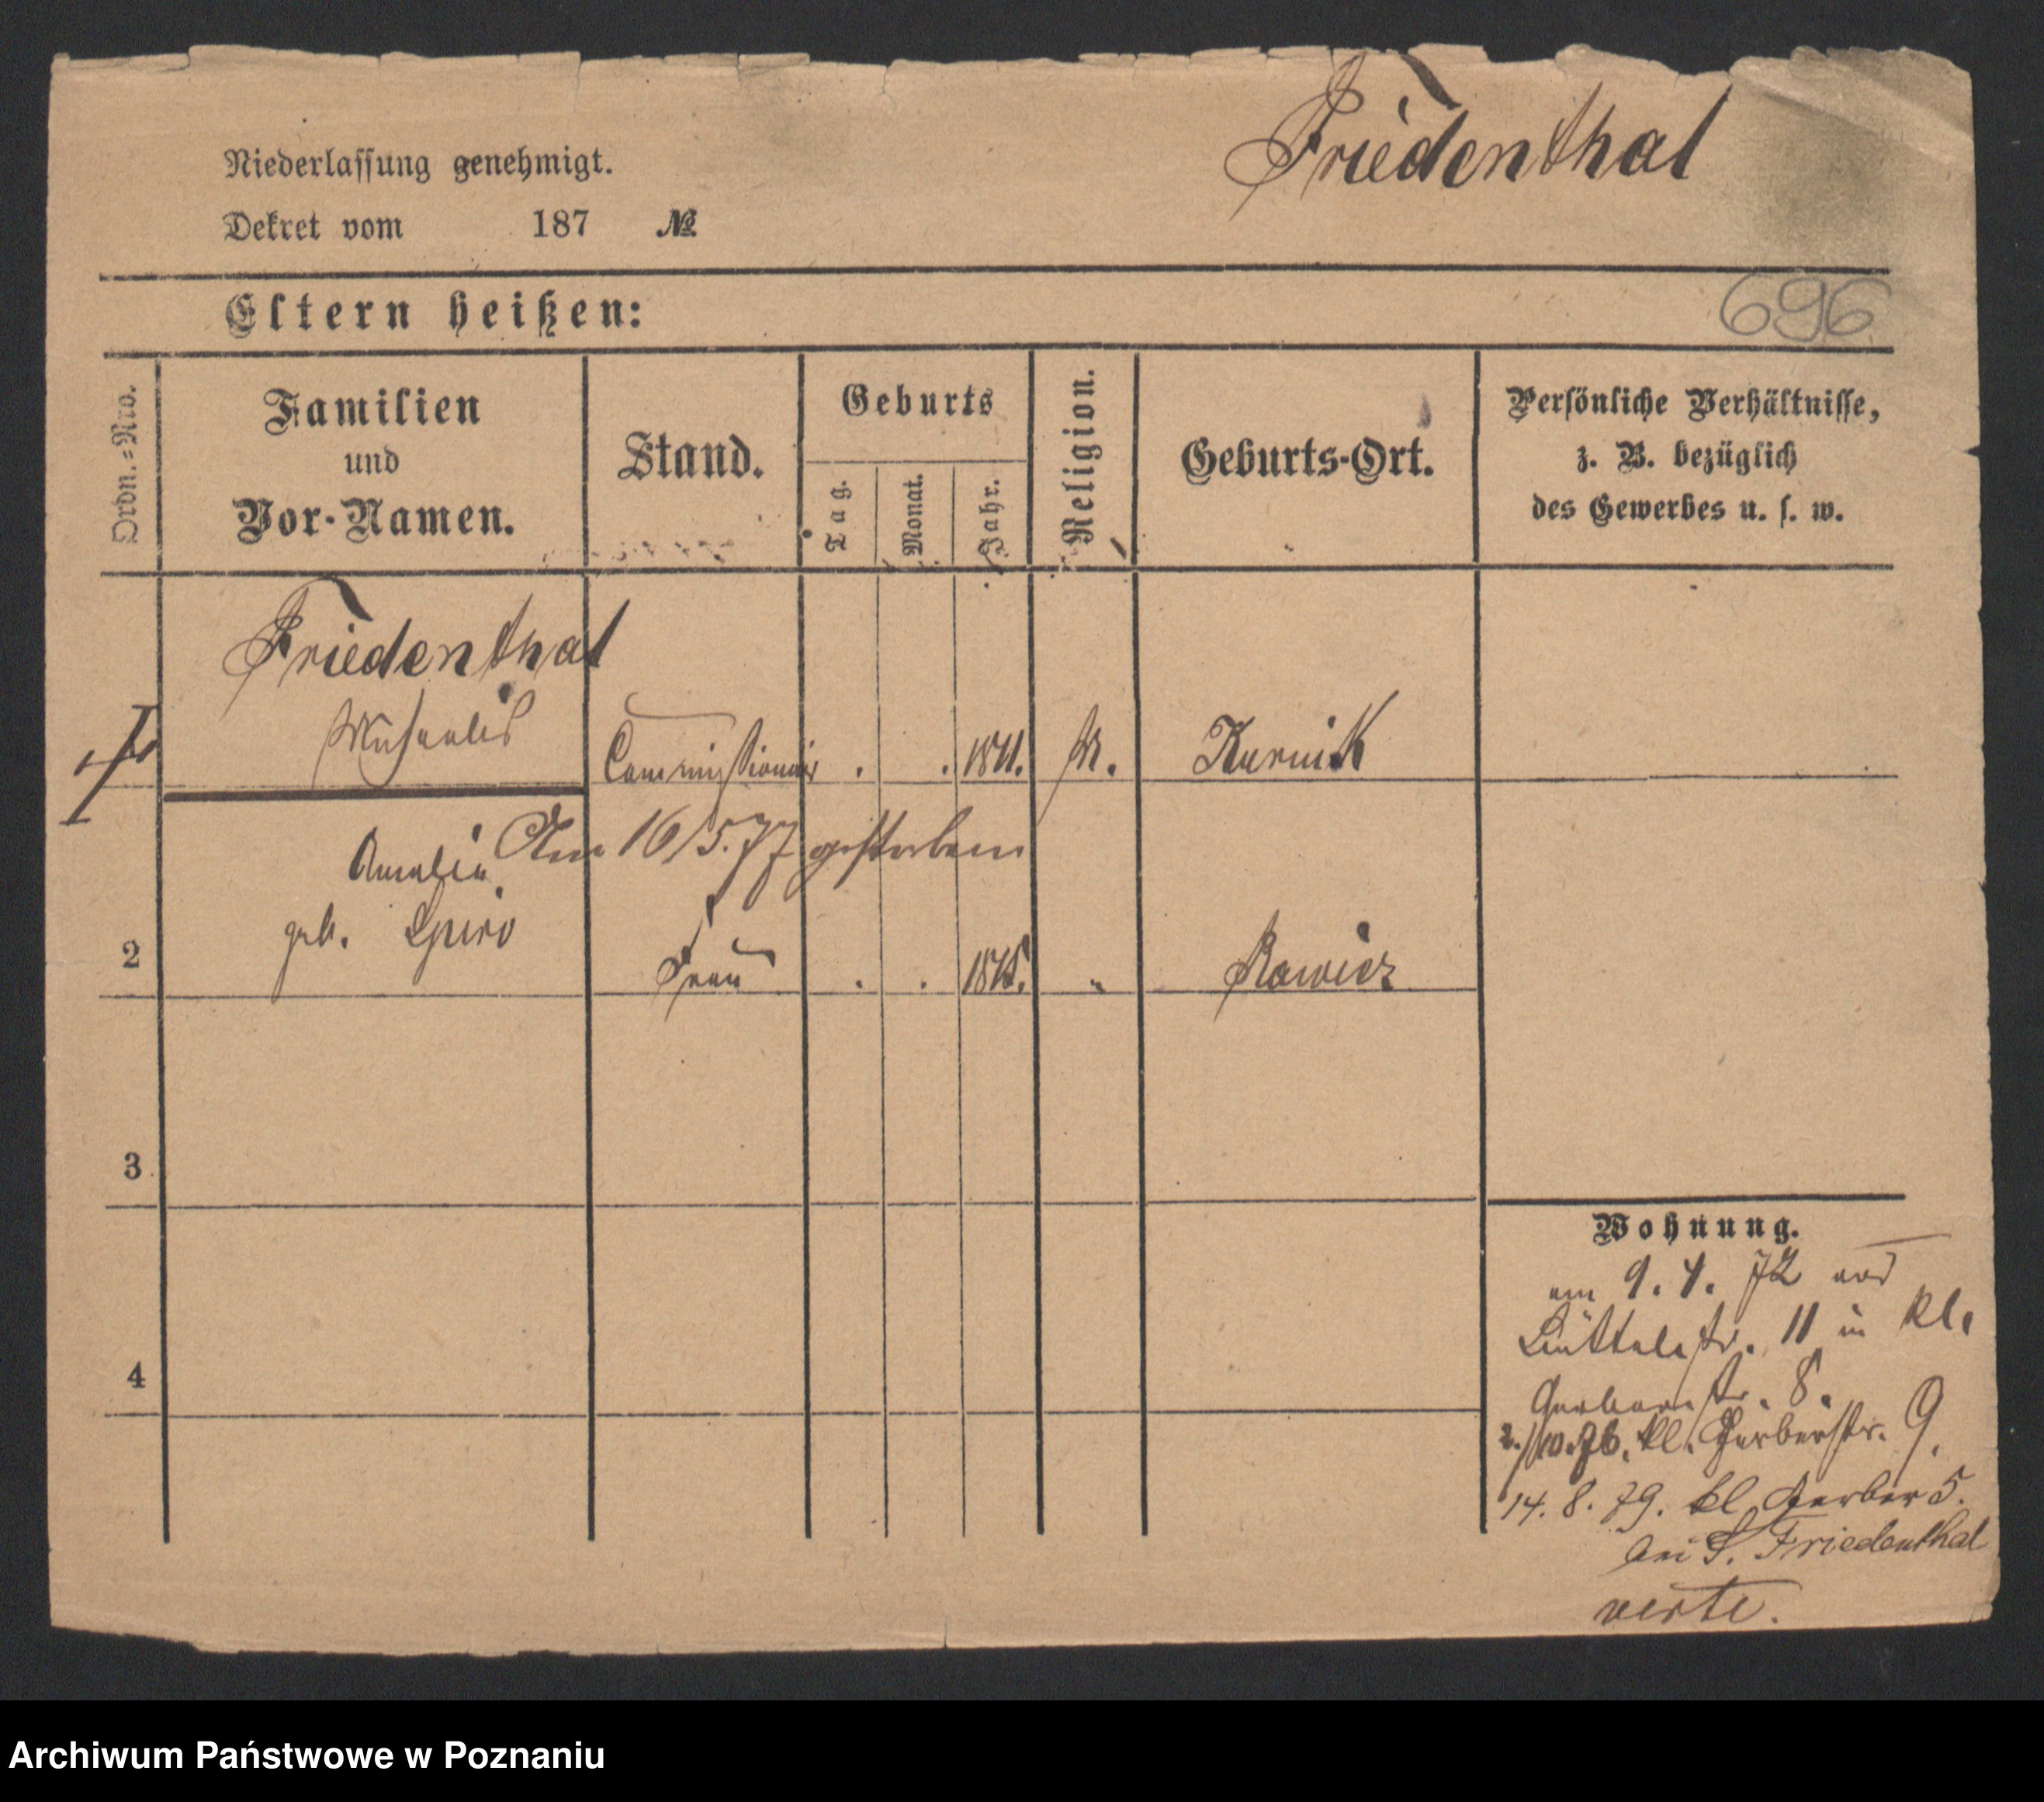 Friedenthal
Niederlassung genehmigt.
Dekret vom 187 №
Eltern heißen:
696
Ordn.=Nro.
Familien
und
Vor-Namen.
Stand.
Geburts
Tag.
Monat.
Jahr.
Religion.
Geburts-Ort.
Persönliche Verhältnisse,
z. B. bezüglich
des Gewerbes u. s. w.
Friedenthal
Michaelis Commissionär . . 1811. M. Kurnik
Am 16/5.77 gestorben
Amalia,
geb. Spiro
2 Frau . . 1815. " Rawicz
3
4
Wohnung.
am 9. 4. 72 von
Büttelstr. 11 in kl.
Gerberstr. 8.
2./10.76. kl. Gerberstr. 9.
14. 8. 79. kl Gerber 5.
bei S. Friedenthal
verte.
Archiwum Państwowe w Poznaniu